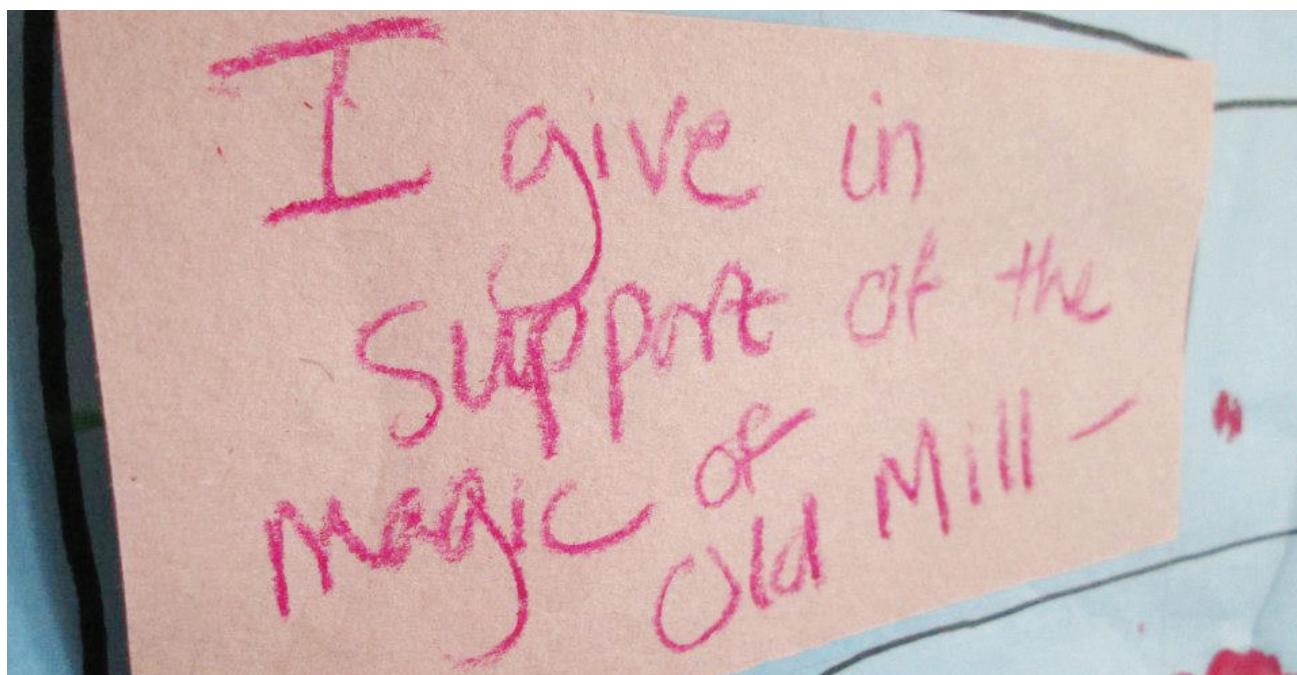 I give in
support of the
magic of
Old Mill –